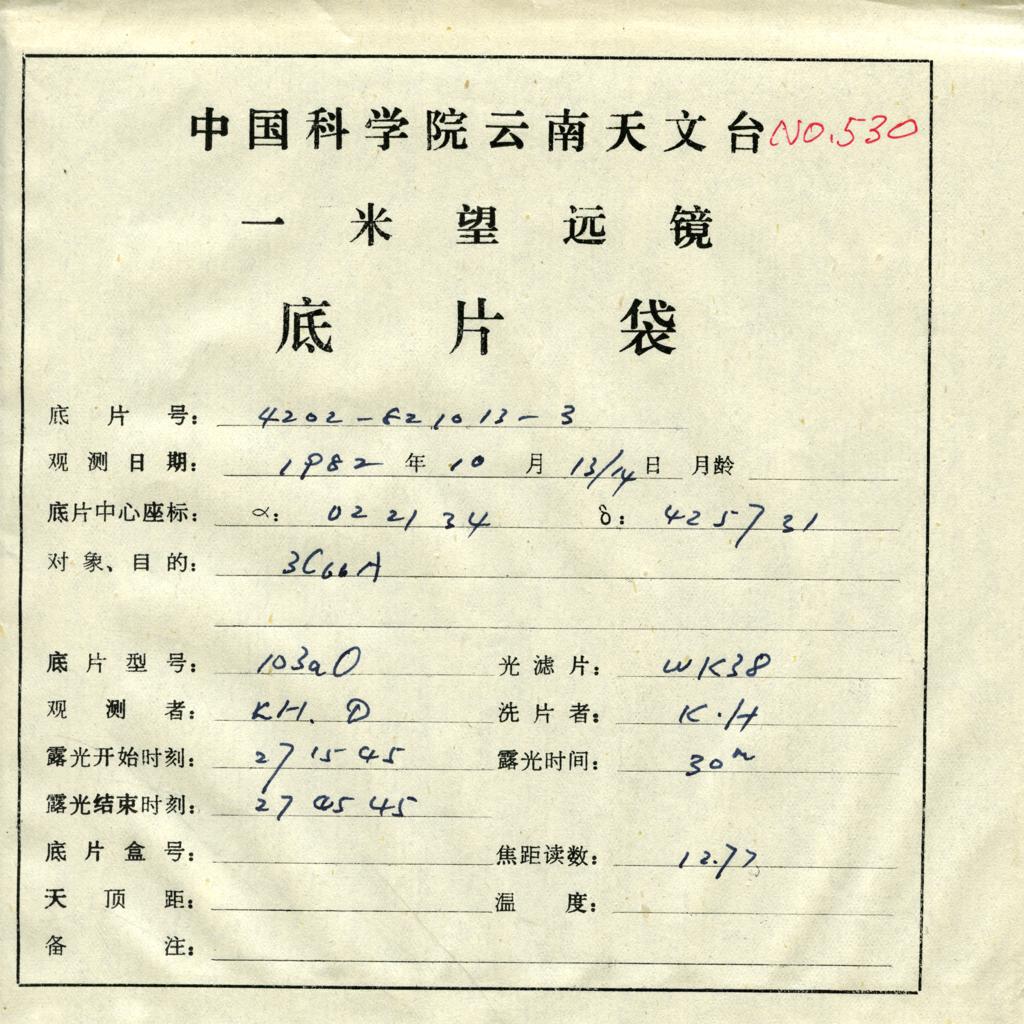 中国科学院云南天文台 NO.530
一米望远镜
底片袋
底片号: 4202-821013-3
观测日期: 1982 年 10 月 13/14 日 月龄
底片中心座标: α: 02 21 34 δ: 42 57 31
对象、目的: 3C66A
底片型号: 103aO 光滤片: WK38
观测者: KH. D 洗片者: K.H
露光开始时刻: 27 15 45 露光时间: 30m
露光结束时刻: 27 45 45
底片盒号: 焦距读数: 12.77
天顶距: 温度:
备注: